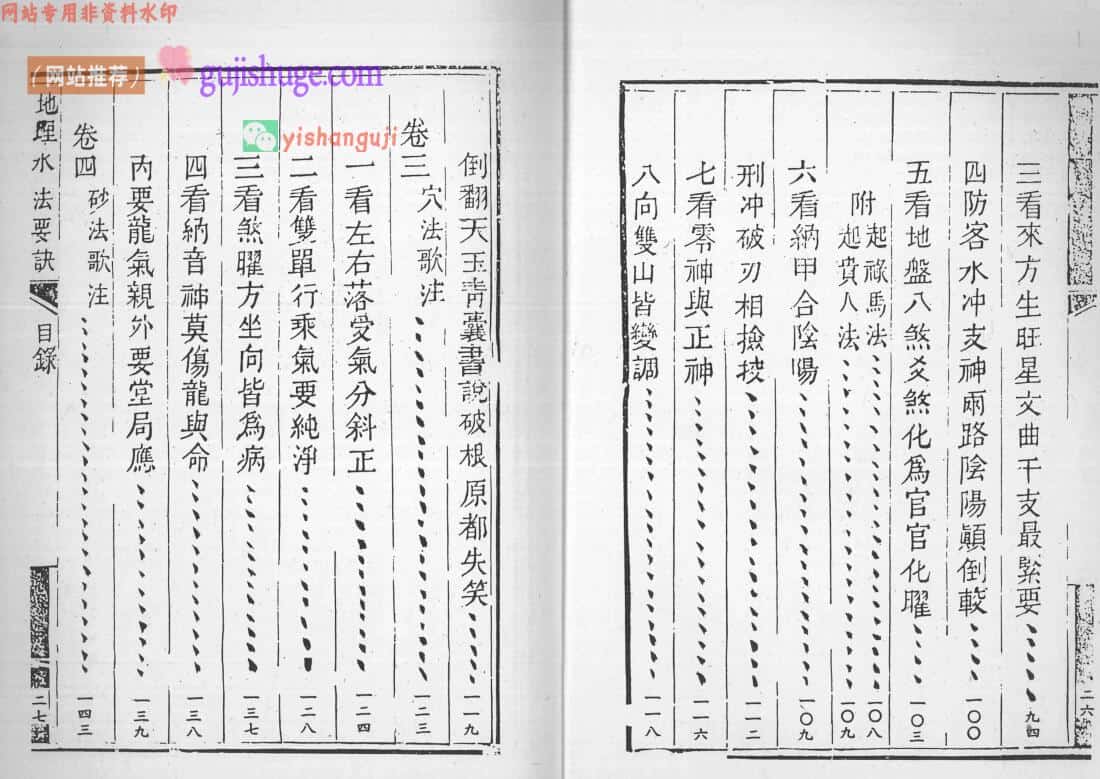 网站专用非资料水印
（网站推荐）
gujishuge.com
yishanguji
三看來方生旺星文曲干支最緊要 九四
四防客水冲支神兩路陰陽顛倒轅 一〇〇
五看地盤八煞爻煞化為官官化曜 一〇三
附 起祿馬法 一〇八
起貴人法 一〇九
六看納甲合陰陽 一〇九
刑冲破刃相撿 一一二
七看零神與正神 一一六
八向雙山皆變調 一一八
二六
倒翻天玉青囊書說破根原都失笑 一一九
卷三 穴法歌注 一二三
一看左右落受氣分斜正 一二四
二看雙單行乘氣要純淨 一二八
三看煞曜方坐向皆為病 一三七
四看納音神莫傷龍與命 一三八
內要龍氣親外要堂局應 一三九
卷四 砂法歌注 一四三
地理水法要訣 目錄 二七